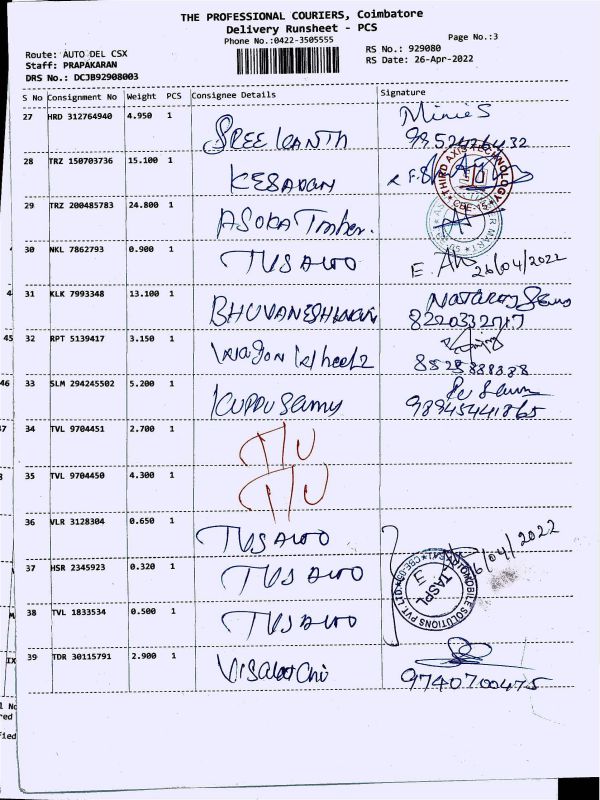 THE PROFESSIONAL COURIERS, Coimbatore
Delivery Runsheet - PCS
Phone No.:0422-3505555
Page No.:3
Route: AUTO DEL CSX
RS No.: 929080
Staff: PRAPAKARAN
RS Date: 26-Apr-2022
DRS No.: DCJB92908003
S No Consignment No Weight PCS Consignee Details Signature
27 HRD 312764940 4.950 1
SREE KANTH
28 TRZ 150703736 15.100 1
KESAVAN
THIRD AXIS TECHNOLOGY
CBE-15
29 TRZ 200485783 24.800 1
ASOKA Timber.
30 NKL 7862793 0.900 1
TVS AUTO E. 26/04/2022
31 KLK 7993348 13.100 1
BHUVANESHWARI
45 32 RPT 5139417 3.150 1
Wagon Wheelz
46 33 SLM 294245502 5.200 1
KUPPUSamy
34 TVL 9704451 2.700 1
35 TVL 9704450 4.300 1
36 VLR 3128304 0.650 1
TVS AUTO /04/2022
37 HSR 2345923 0.320 1
TVS AUTO
TASPL
AUTOMOBILE SOLUTIONS PVT. LTD.
38 TVL 1833534 0.500 1
TVS AUTO
39 TDR 30115791 2.900 1
Visalatchi 9740700475